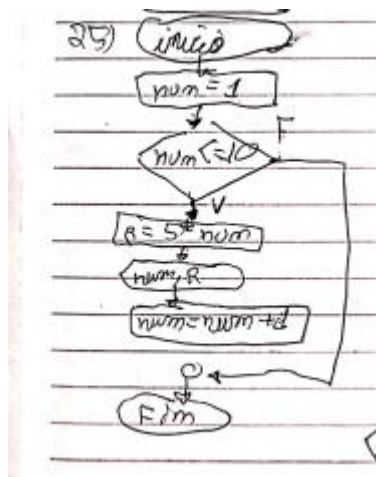 25) início
num = 1
F
num <= 10
V
R = 5 * num
num, R
num = num +
Fim